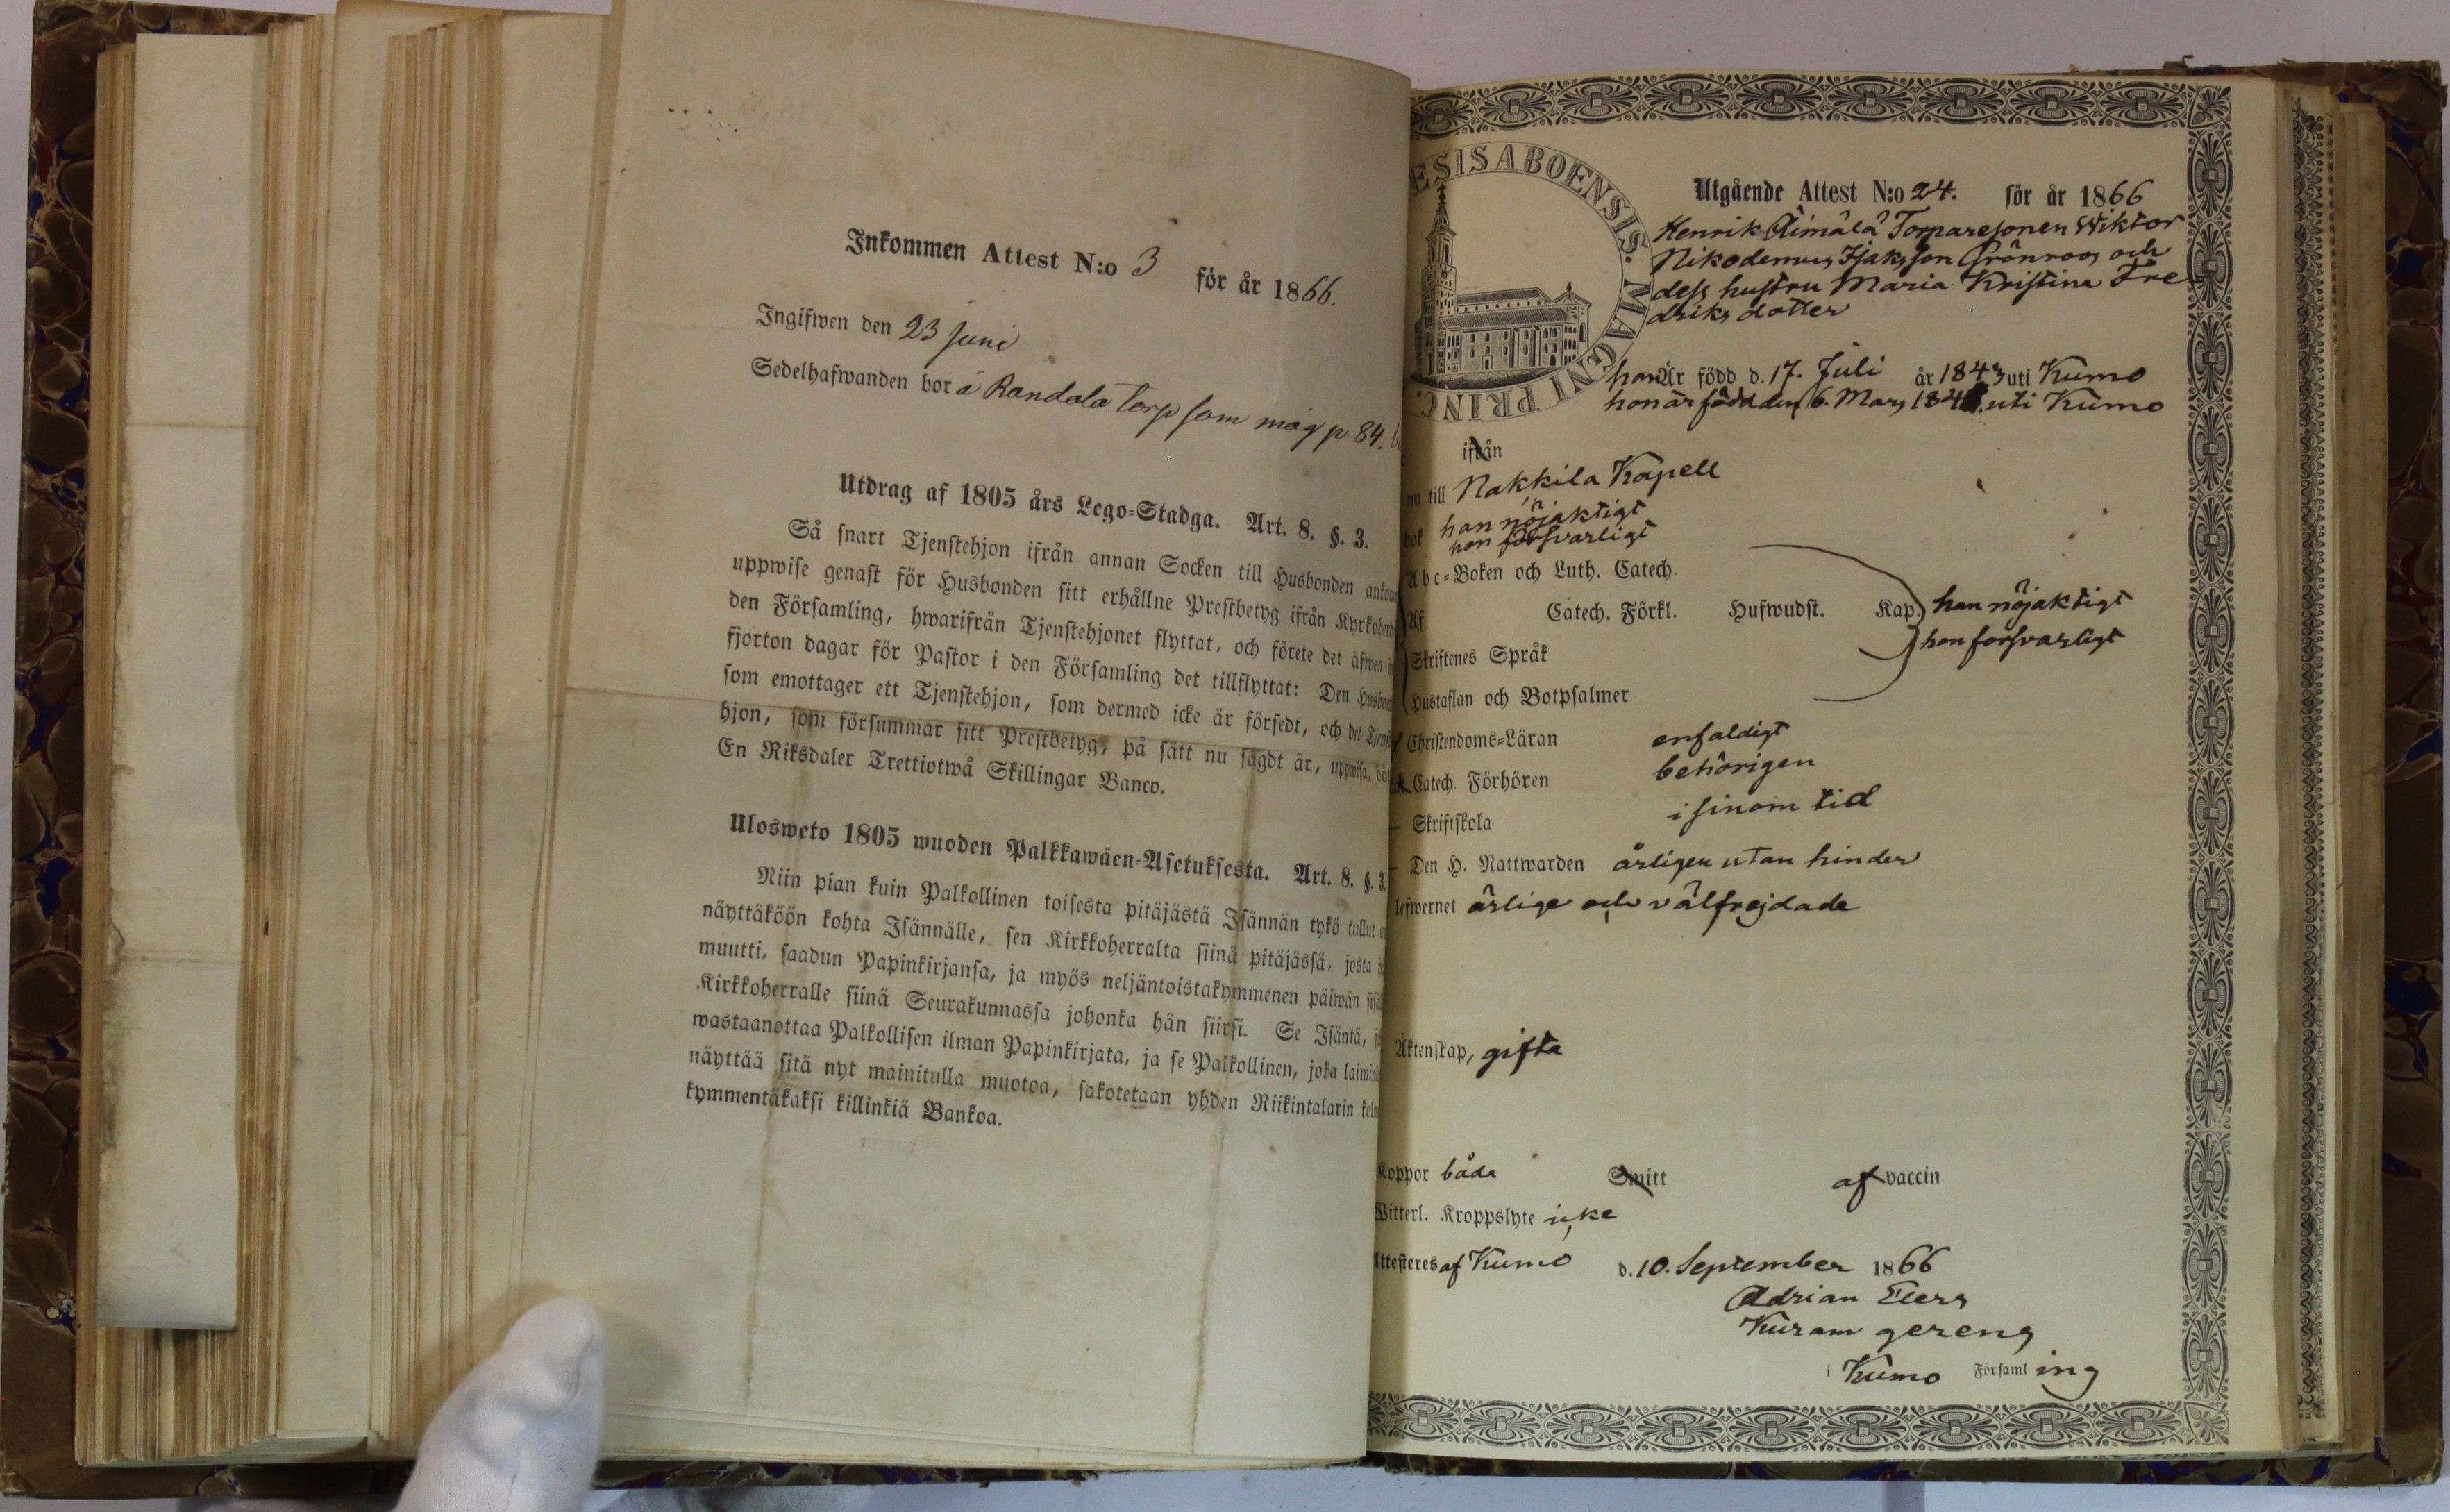 Inkommen Attest N:o 3 för år 1866.
Ingifwen den 23 Juni
Sedelhafwanden bor å Randala torp som måg p. 84.
Utdrag af 1805 års Lego-Stadga. Art. 8. §. 3.
Så snart Tjenstehjon ifrån annan Socken till Husbonden
uppwise genast för Husbonden sitt erhållne Prestbetyg ifrån
den Församling, hwarifrån Tjenstehjonet flyttat, och förete det äfwen
fjorton dagar för Pastor i den Församling det tillflyttat: Den
som emottager ett Tjenstehjon, som dermed icke är försedt, och det
hjon, som försummar sitt Prestbetyg, på sätt nu sagdt är, uppwisa,
En Riksdaler Trettiotwå Skillingar Banco.
Ulosweto 1805 wuoden Palkkawäen-Asetuksesta. Art. 8. §. 3.
Niin pian kuin Palkollinen toisesta pitäjästä Isännän tykö tullut
näyttäköön kohta Isännälle, sen Kirkkoherralta siinä pitäjässä, josta
muutti, saadun Papinkirjansa, ja myös neljäntoistakymmenen päiwän
Kirkkoherralle siinä Seurakunnassa johonka hän siirsi. Se Isäntä,
wastaanottaa Palkollisen ilman Papinkirjata, ja se Palkollinen, joka
näyttää sitä nyt mainitulla muotoa, sakotetaan yhden Riikintalarin
kymmentäkaksi killinkiä Bankoa.
ESIS ABOENSIS. MAGNI PRINC.
Utgående Attest N:o 24. för år 1866
Henrik Äimälä Wiktor
Nikodemus Isaksson Grönroos och
dess hustru Maria Kristina Fre
driks dotter
han Är född d. 17. Juli år 1843 uti Kumo
hon är född den 6. Mars uti Kumo
ifrån
nu till Nakkila Kapell
bok han nöjaktigt
hon försvarligt
Abc-Boken och Luth. Catech.
Af Catech. Förkl. Hufwudst. Kap. han nöjaktigt
Skriftenes Språk hon försvarligt
Hustaflan och Botpsalmer
Christendoms-Läran enfaldigt
Catech. Förhören behörigen
Skriftskola i sinom tid
Den H. Nattwarden årligen utan hinder
lefwernet ärlige och välfrejdade
Äktenskap, gifta
Koppor båda Smitt af vaccin
Witterl. Kroppslyte icke
Attesteres af Kumo d. 10. September 1866
Adrian Elers
Kuram gerens
i Kumo Församling